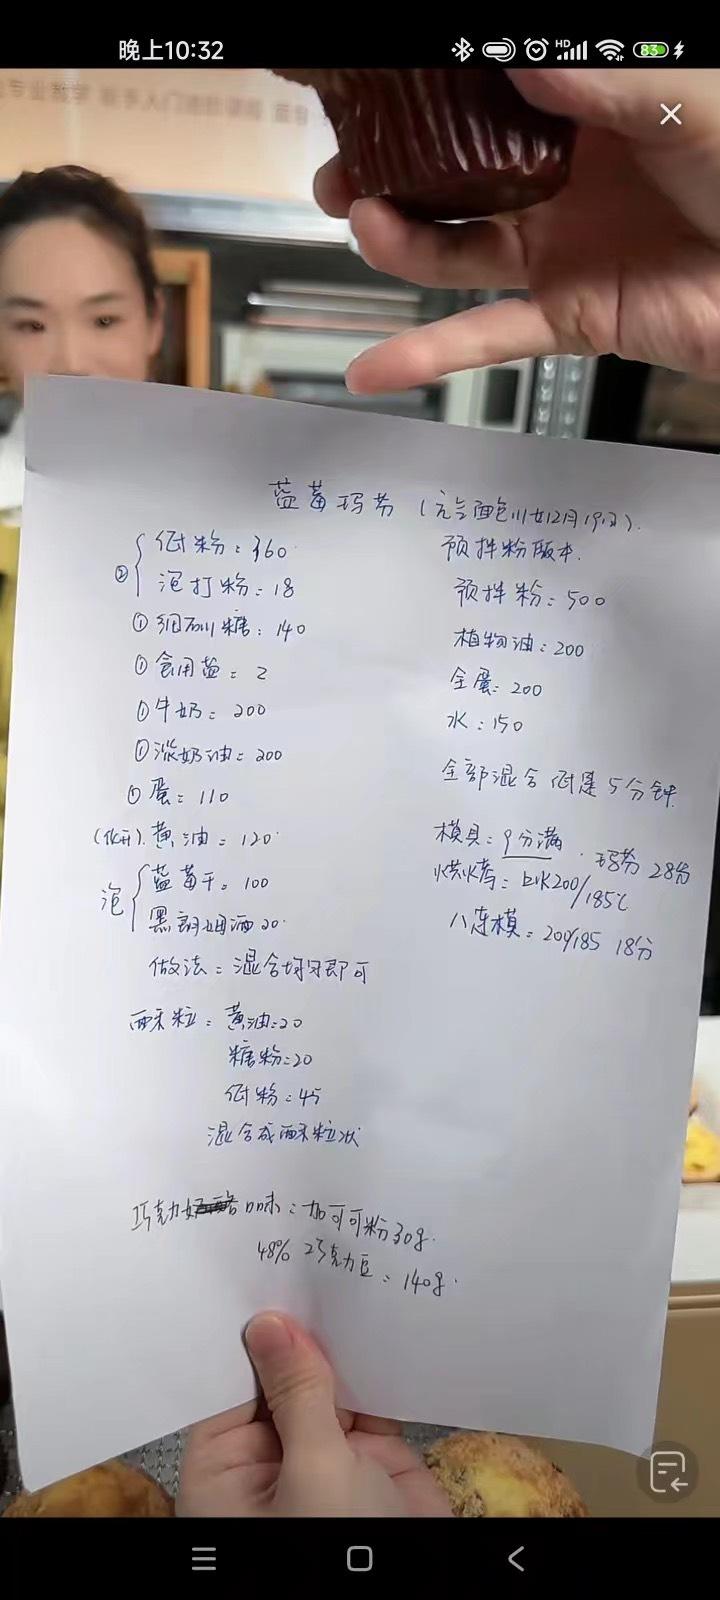 晚上10:32
HD
83
专业教学 新手入门
蓝莓玛芬（元气面包小女12月19日）.
② 低粉：360
泡打粉：18
① 细砂糖：140
① 食用盐：2
① 牛奶：200
① 淡奶油：200
① 蛋：110
(化开). 黄油：120
泡 蓝莓干：100
黑朗姆酒20
做法：混合均匀即可
酥粒：黄油：20
糖粉：20
低粉：45
混合成酥粒状
巧克力 口味：加可可粉30g.
48% 巧克力豆：140g.
预拌粉版本.
预拌粉：500
植物油：200
全蛋：200
水：150
全部混合 低速5分钟.
模具：9分满
烘烤：上火200/185℃ 玛芬 28分
八连模：200/185 18分